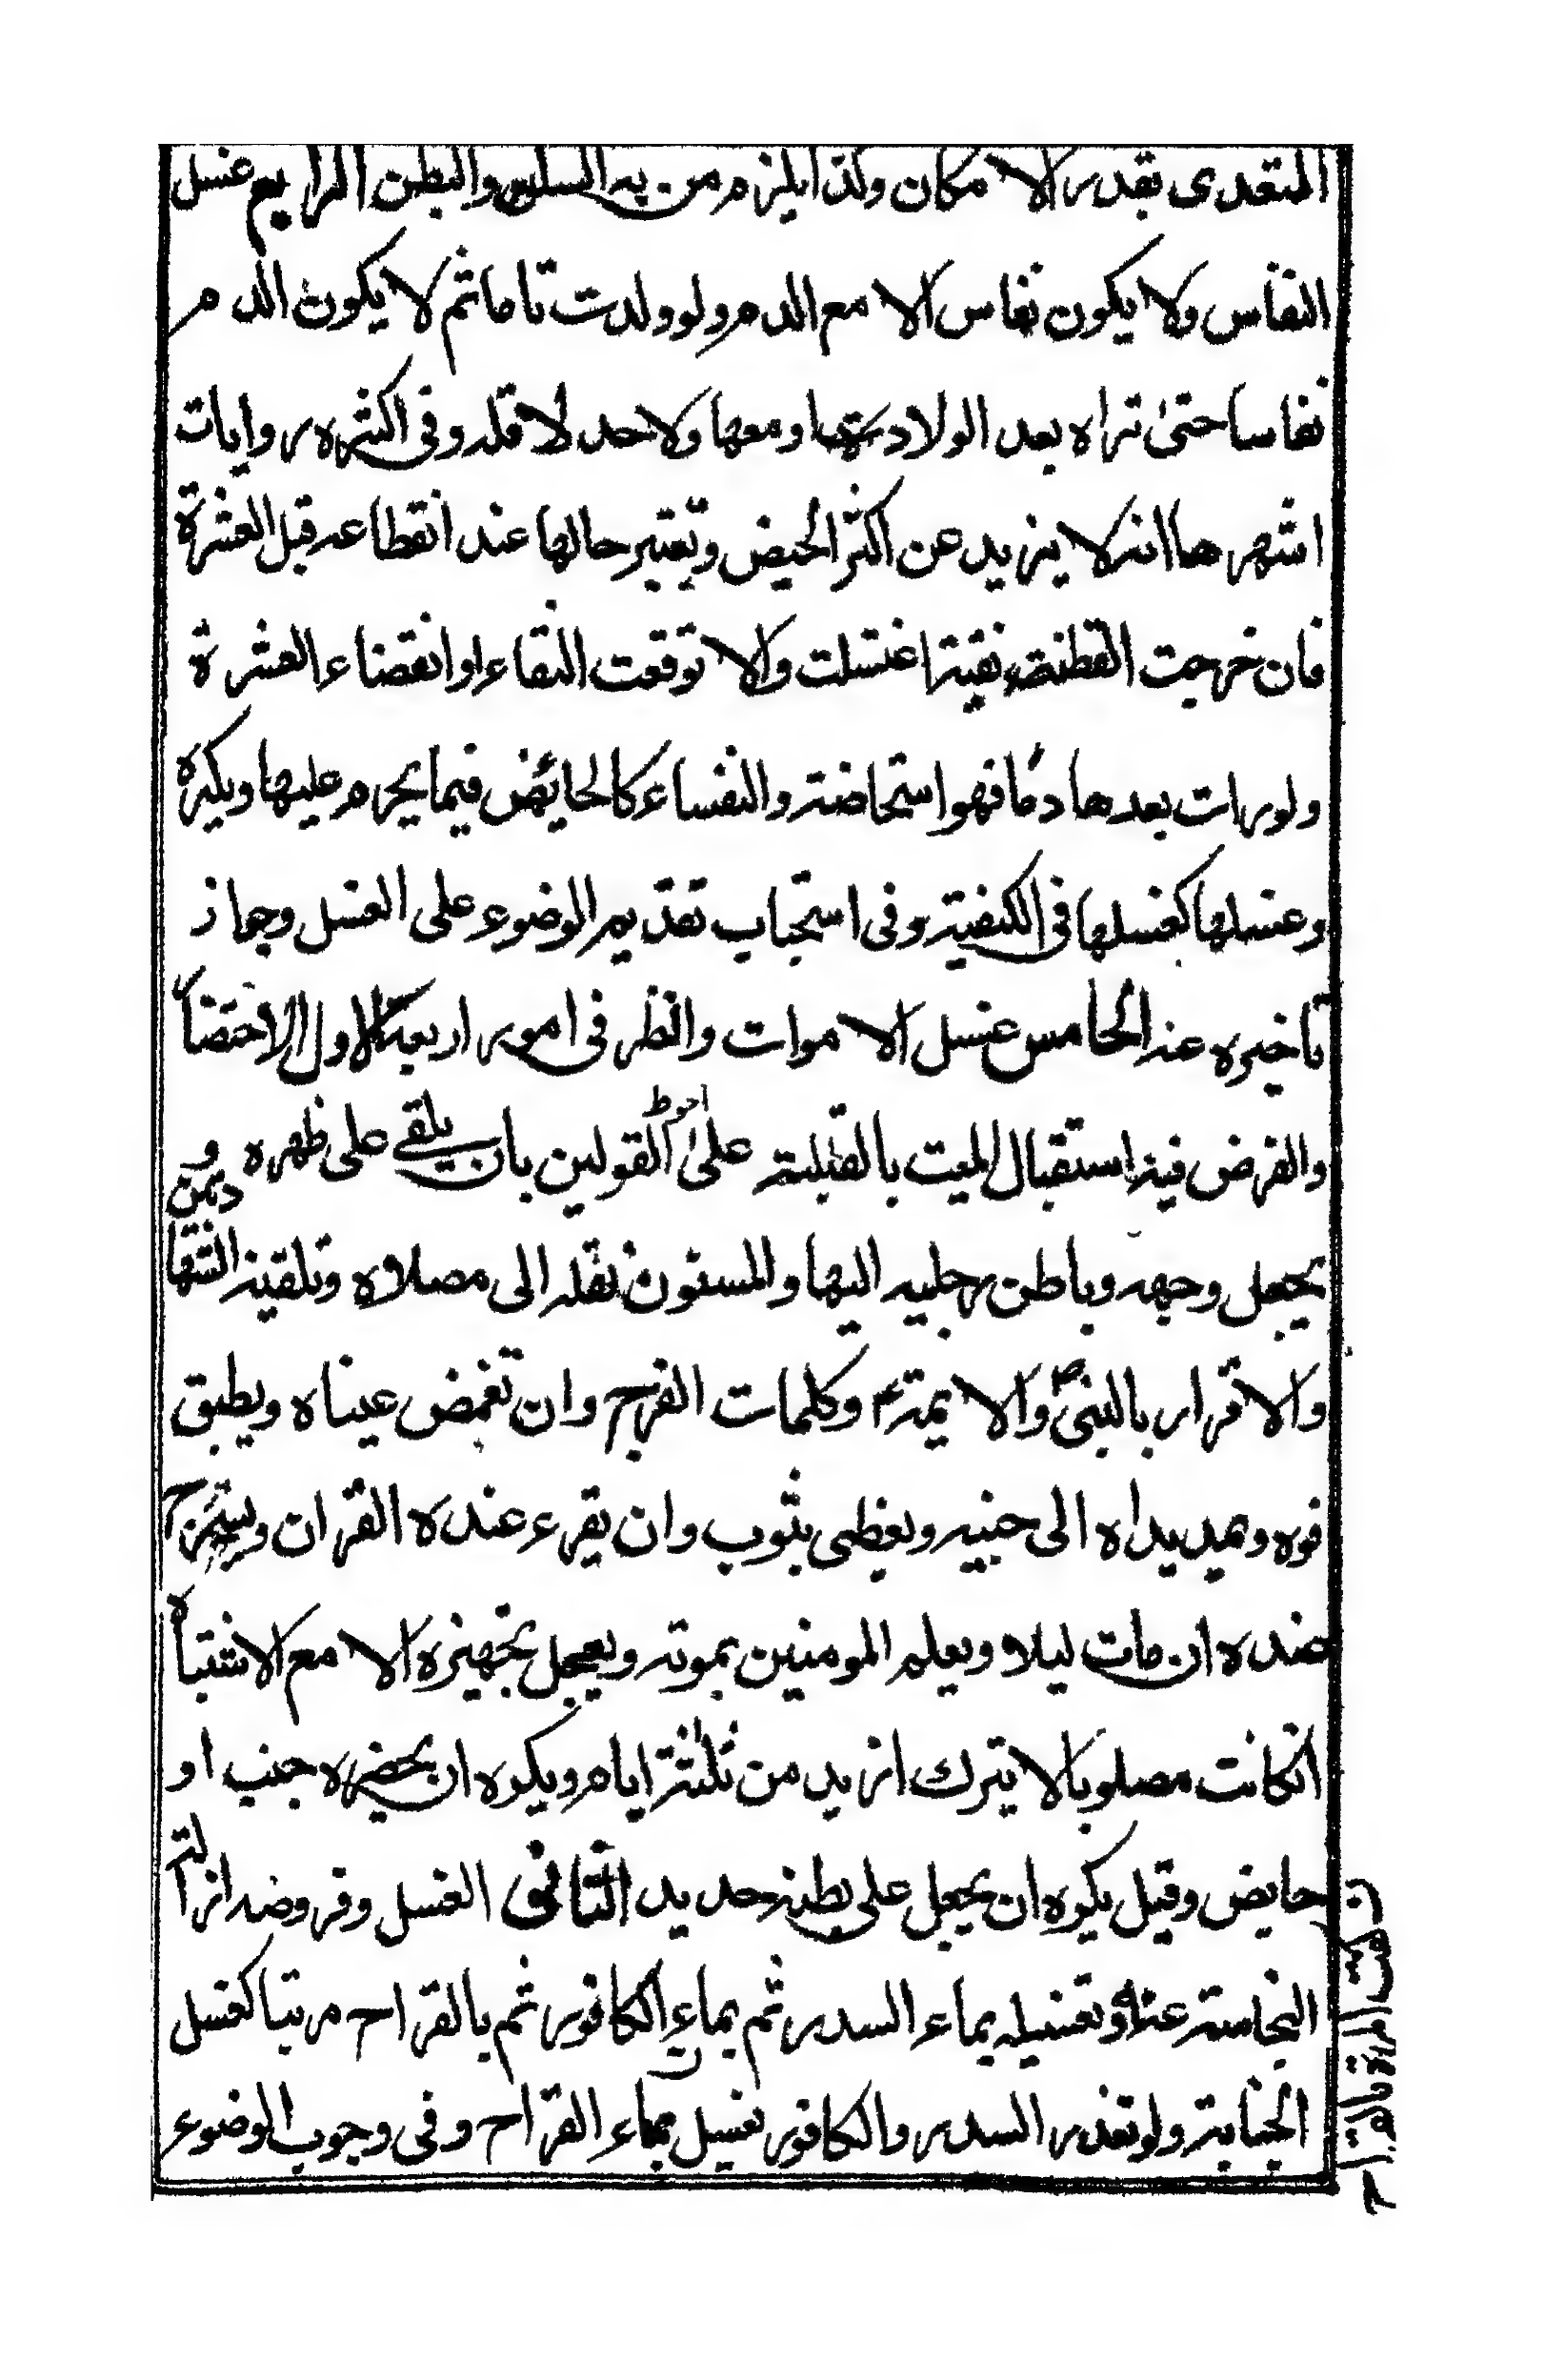 المتعدى بقدر الامكان وكذا يلزم من به السلس والبطن الرابع غسل
النفاس ولا يكون نفاس الا مع الدم ولو ولدت تاما ثم لا يكون الدم
نفاسا حتى تراه بعد الولادة او معها ولا حد لاقله وفى اكثره روايات
اشهرها انه لا يزيد عن اكثر الحيض وتعتبر حالها عند انقطاعه قبل العشرة
فان خرجت القطنة نقية اغتسلت والا توقعت النقاء او انقضاء العشرة
ولو رات بعدها دمًا فهو استحاضة والنفساء كالحائض فيما يحرم عليها ويكره
وغسلها كغسلها فى الكيفية وفى استحباب تقديم الوضوء على الغسل وجواز
تاخيره عنه الخامس غسل الاموات والنظر فى امور اربعة الاول الاحتضار
والفرض فيه استقبال الميت بالقبلة على احوط القولين بان يلقى على ظهره و
يجعل وجهه وباطن رجليه اليها والمسنون نقله الى مصلاه وتلقينه الشهادتين
والاقرار بالنبىؐ والايمةؑ وكلمات الفرج وان تغمض عيناه ويطبق
فوه ويمد يداه الى جنبيه ويغطى بثوب وان يقرء عنده القران ويسرج
عنده ان مات ليلا ويعلم المومنين بموته ويعجل تجهيزه الا مع الاشتباه
انكانت مصلوبا لا يترك ازيد من ثلثة ايام ويكره ان يحضره جنب او
حايض وقيل يكره ان يجعل على بطنه حديد الثانى الغسل وفروضه ازالة
النجاسة عنه وتغسيله بماء السدر ثم بماء الكافور ثم بالقراح مرتبا كغسل
الجنابة ولو تعذر السدر والكافور غسل بماء القراح وفى وجوب الوضوء